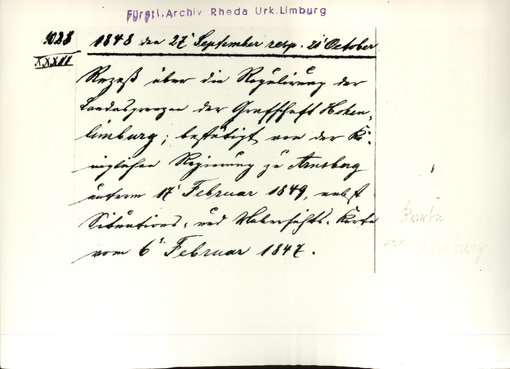 Fürstl. Archiv Rheda Urk. Limburg
1028 1848 den 27t September resp. 21t October
XXXIII
Rezeß über die Regulirung der
Landesgrenzen der Grafschaft Hohen-
limburg; bestätigt von der Kö-
niglichen Regierung zu Arnsberg
unterm 17t Februar 1849, nebst
Situations- und Uebersichts-Karte
vom 6t Februar 1847.
Karte
von Limburg